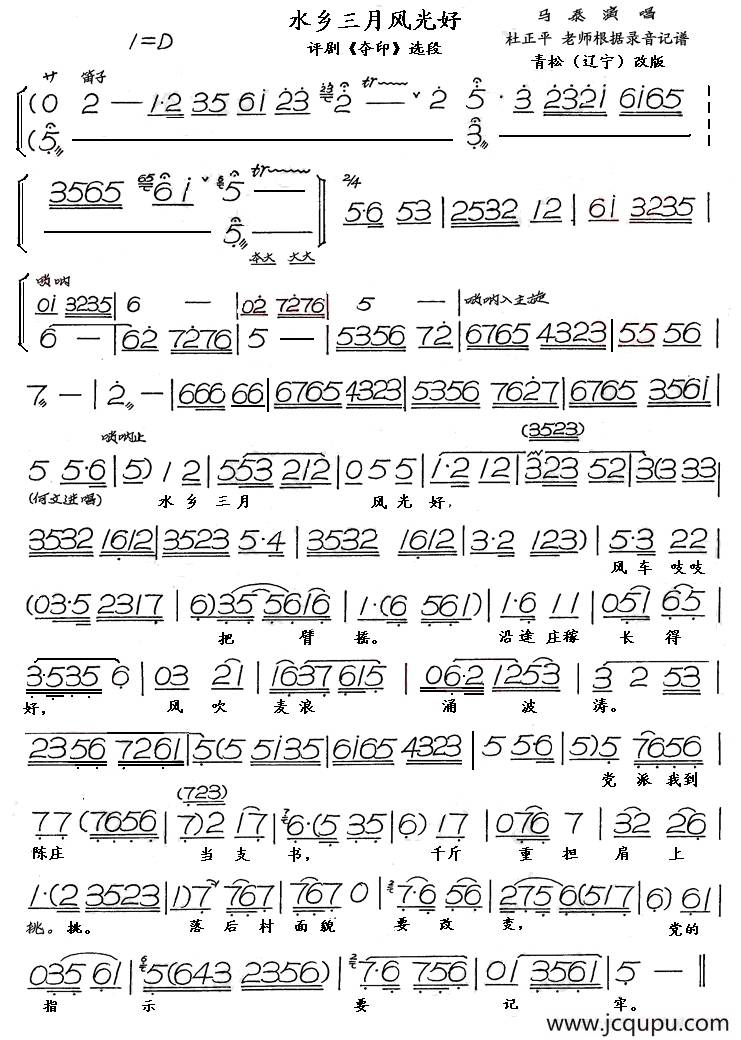 水乡三月风光好
评剧《夺印》选段
1=D
马泰演唱
杜正平 老师根据录音记谱
青松（辽宁）改版
サ 笛子
(0 2 — 1·2 35 6i 23 2 tr 2 5·3 2321 6i65
(5 3
3565 6i 5 tr 2/4 5·6 53 | 2532 12 | 6i 3235 |
5 夲大 大大
唢呐
0i 3235 | 6 — | 02 7276 | 5 — | 唢呐入主旋
6 — | 62 7276 | 5 — | 5356 72 | 6765 4323 | 55 56 |
7 — | 2 — | 666 66 | 6765 4323 | 5356 7627 | 6765 356i |
唢呐止 (3523)
5 5·6 | 5) 12 | 553 212 | 0 5 5 | 1·2 12 | 323 52 | 3(3 33
(何文进唱) 水乡 三月 风光好，
3532 1612 | 3523 5·4 | 3532 1612 | 3·2 123) | 5·3 22 |
风车吱吱
(03·5 2317 | 6)35 5616 | 1·(6 561) | 1·6 11 | 051 65 |
把臂摇。 沿途庄稼长得
3·535 6 | 03 21 | 1637 615 | 06·2 1253 | 3 2 53 |
好， 风吹麦浪 涌波涛。
2356 7261 | 5(5 5i35 | 6i65 4323 | 5 56 | 5)5 7656 |
党派我到
(723)
77 (7656 | 7)2 17 | 6·(5 35 | 6) 17 | 076 7 | 32 26 |
陈庄 当支书， 千斤重担肩上
1·(2 3523 | 1)7 767 | 767 0 | 7·6 56 | 275 6(517 | 6) 61 |
挑。挑。 落后村面貌 要改变， 党的
035 61 | 5(643 2356) | 7·6 756 | 01 3561 | 5 — ‖
指示 要记牢。
www.jcqupu.com